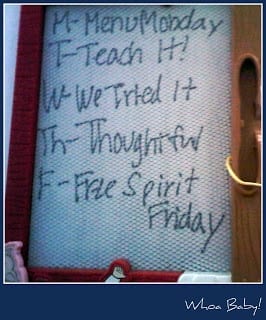 M-MenuMonday
T-Teach It!
W-We Tried It
Th-Thoughtful
F-Free Spirit
Friday
Whoa Baby!